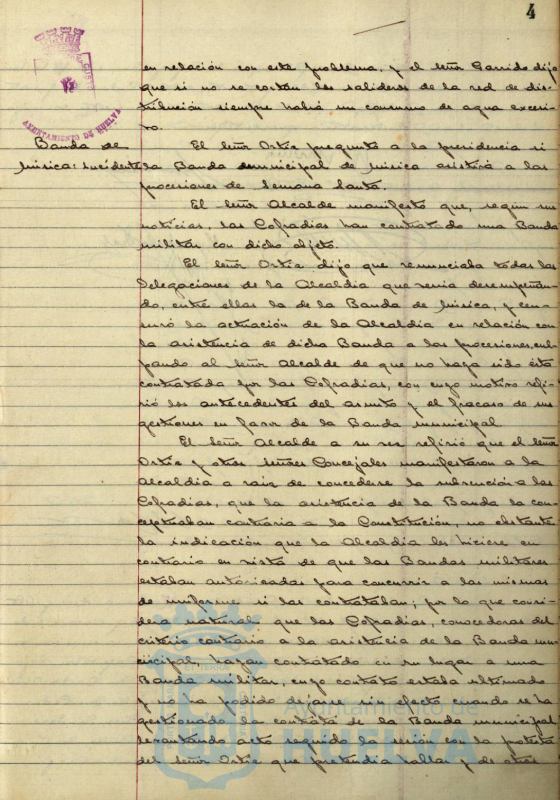 4
en relación con este problema, y el señor Garrido dijo
que si no se cortan los salideros de la red de dis-
tribución siempre habrá un consumo de agua excesi-
vo.
AYUNTAMIENTO DE HUELVA
Banda de
música: incidente
El señor Ortiz preguntó a la presidencia si
la Banda municipal de música asistirá a las
procesiones de Semana Santa.
El señor Alcalde manifestó que, según sus
noticias, las Cofradías han contratado una Banda
militar con dicho objeto.
El señor Ortiz dijo que renunciaba todas las
Delegaciones de la Alcaldía que venía desempeñan-
do, entre ellas la de la Banda de música, y cen-
suró la actuación de la Alcaldía en relación con
la asistencia de dicha Banda a las procesiones, cul-
pando al señor Alcalde de que no haya sido ésta
contratada por las Cofradías, con cuyo motivo refi-
rió los antecedentes del asunto y el fracaso de sus
gestiones en favor de la Banda municipal
El señor Alcalde a su vez refirió que el señor
Ortiz y otros señores Concejales manifestaron a la
Alcaldía a raíz de concederse la subvención a las
Cofradías, que la asistencia de la Banda la con-
ceptuaban contraria a la Constitución, no obstante
la indicación que la Alcaldía les hiciere en
contrario en vista de que las Bandas militares
estaban autorizadas para concurrir a las mismas
de uniforme si las contrataban; por lo que consi-
dera natural que las Cofradías, conocedoras del
criterio contrario a la asistencia de la Banda mu-
nicipal, hayan contratado en su lugar a una
Banda militar, cuyo contrato estaba ultimado
y no ha podido dejarse sin efecto cuando se ha
gestionado la contrata de la Banda municipal
levantando acto seguido la sesión con la protesta
del señor Ortiz que pretendía hablar y de otros
Ayuntamiento de
HUELVA